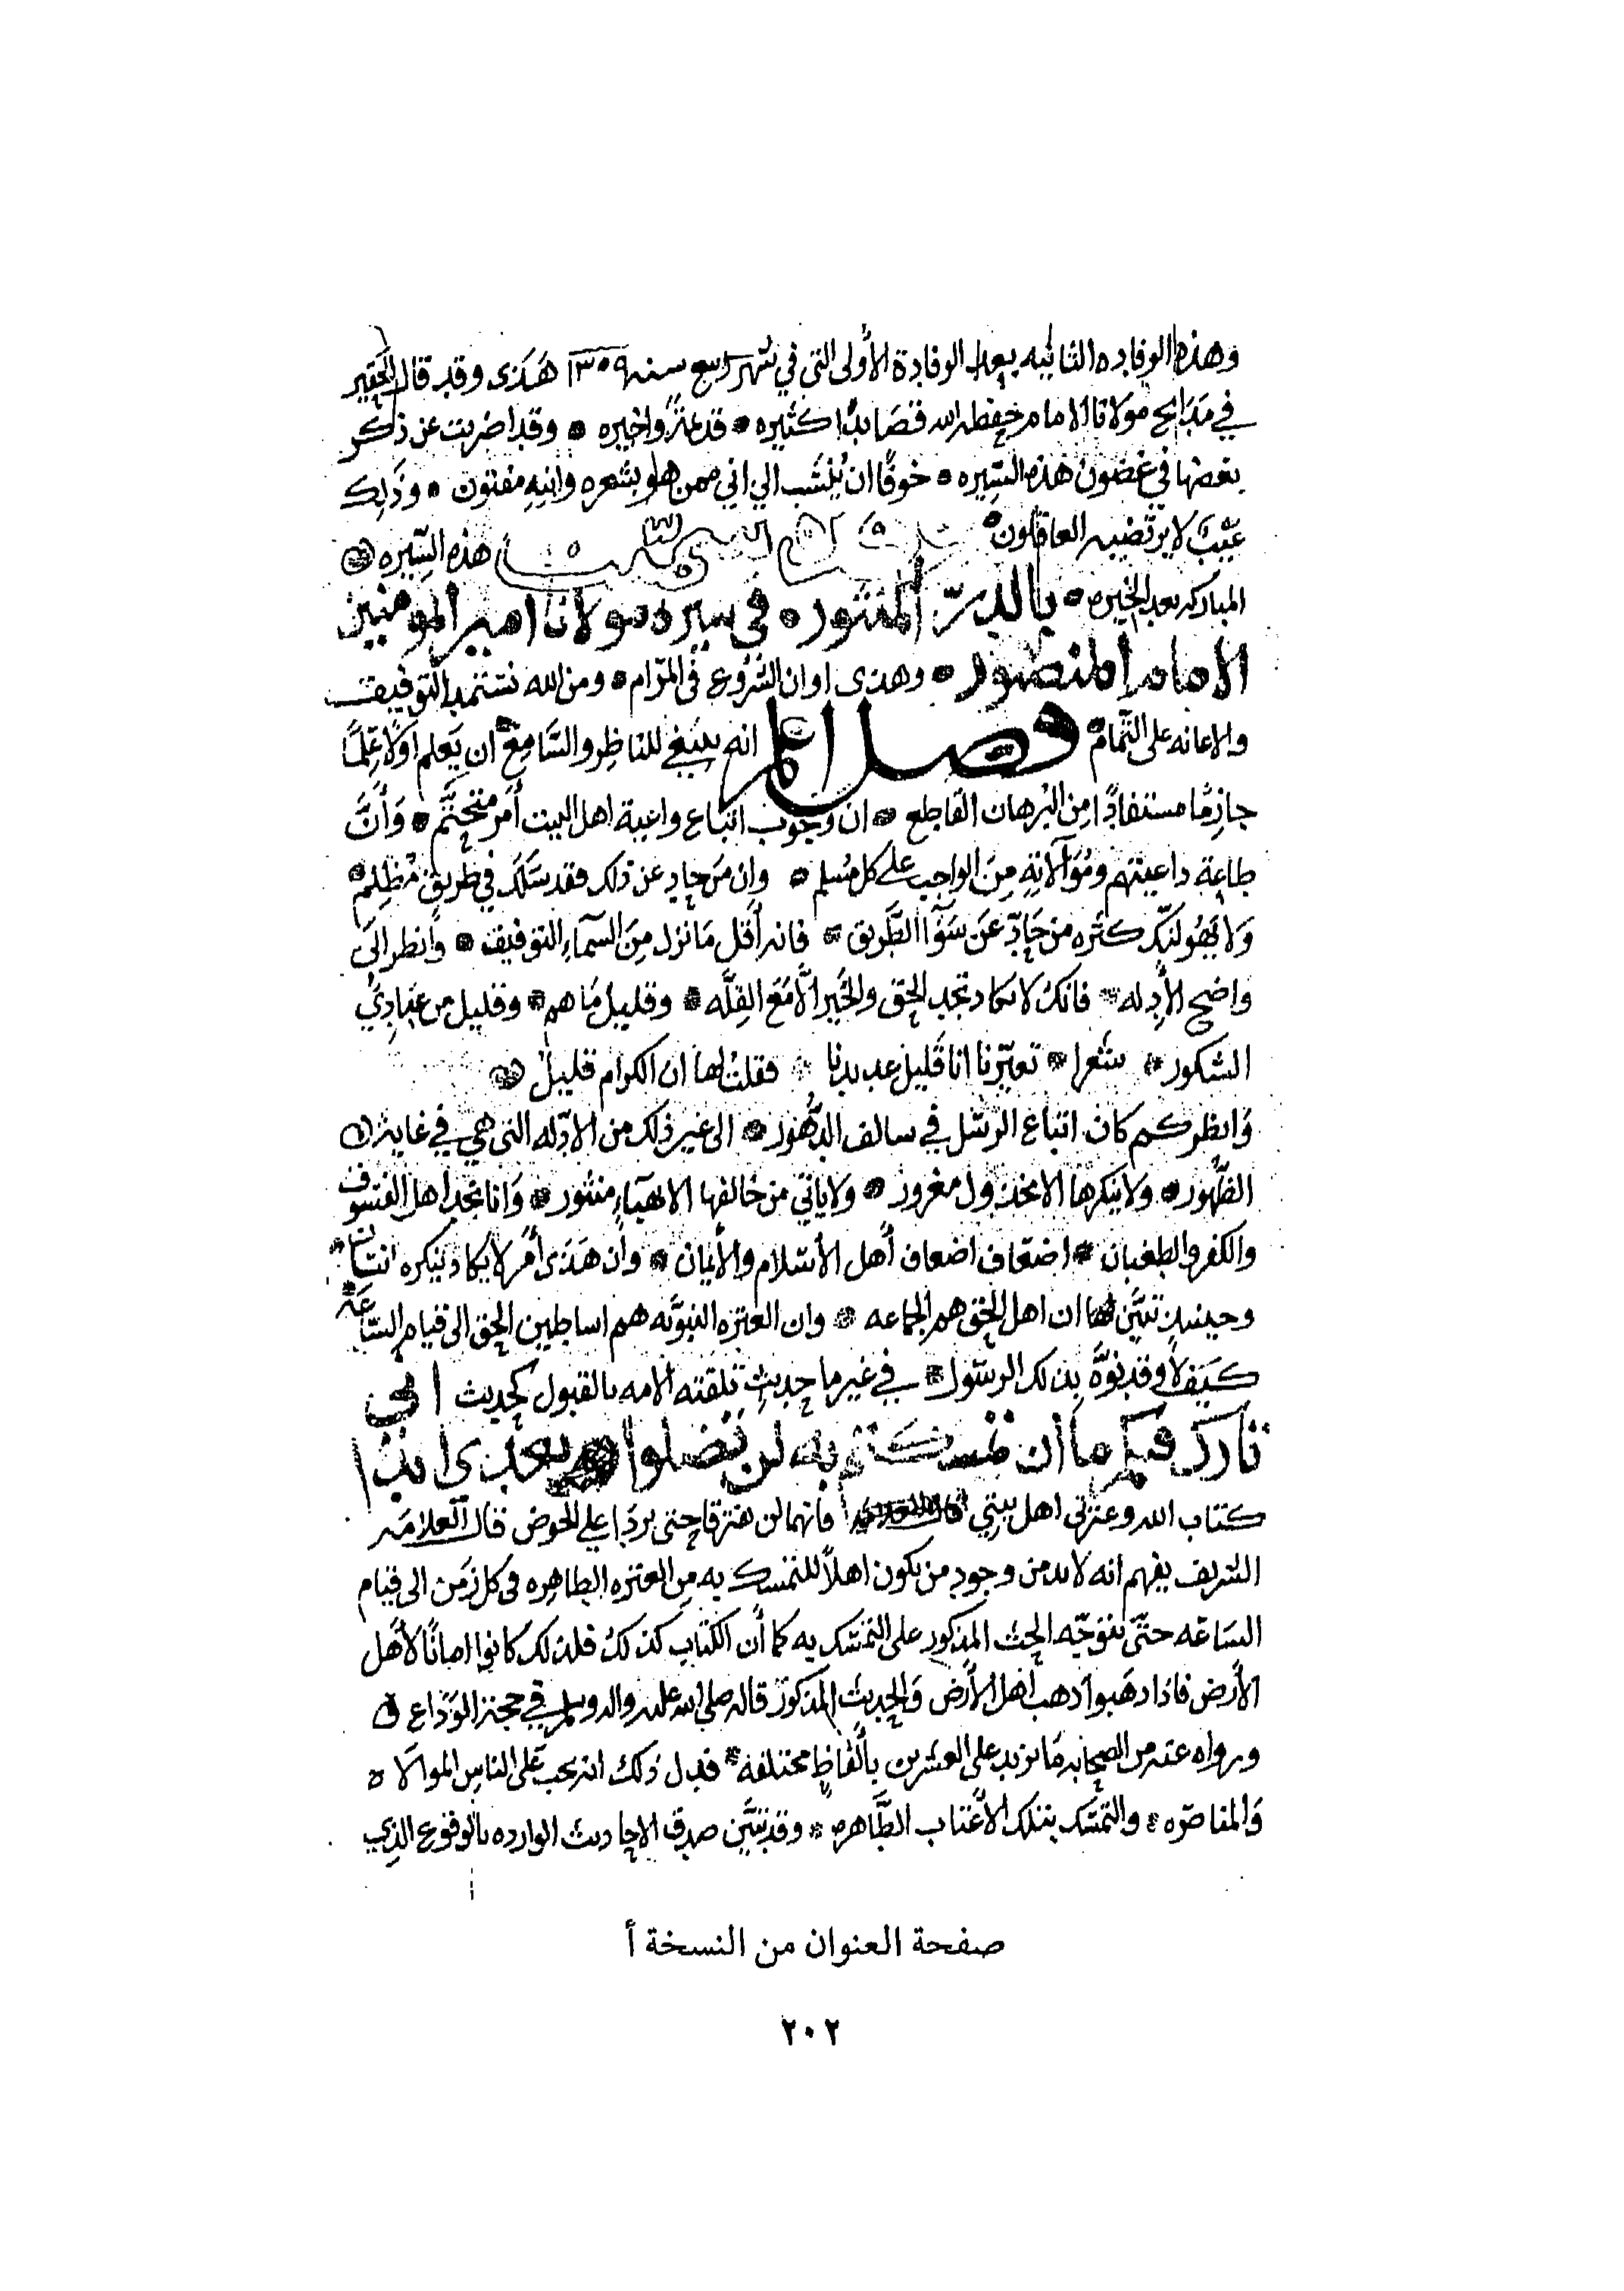 وهذه الوفاده الثانيه بعد الوفادة الأولى التي في شهر ربيع سنه ١٣٠٩ هَذى وقد قال الحقير
في مَدَايح مولانا الامام حفظه الله قصَائدًا كثيره • قدعةً واخيره • وقد اضربت عن ذكر
بعضها في غضون هذه السِّيره • خوفًا ان يُنسَب الي اني ممن هو بشعره وابنه مفتون • وذلك
عَيبٌ لا يرتضيه العاقلون • هذه السِّيره
المباركه بعد الخيره • بالدرّ المنثور • في سيرة مولانا امير المومنين
الامام المنصور • وهذى اوان الشُرُوع في المرَام • ومن الله نستمد التوفيق
والاعانه على التّمام • فصل اعلم انه ينبغي للناظِر والسَّامع ان يَعلم اولًا عِلمًا
جازمًا مستفادًا من البُرهان القاطع • ان وجوب اتباع واعية اهل البيت أمر متحتَّم • وَأَنَّ
طاعة داعيتهم ومُوَالاته مِنَ الواجب على كل مُسلم • وان مَن حاد عن ذلك فقد سَلَك في طريقٍ مُظلم •
وَلا يَهُولنّك كثره من حَادّ عَن سَوَآ الطَّريق • فانه أقل مَا نزل مِنَ السمآءِ التوفيق • وانظر الَى
واضح الأدله • فانكُ لا تكاد تجد الحق والخَير الّا مَعَ القِلَّه • وقليل مَا هم • وقليل من عبَادِيَ
الشكور • شعرا • تعيّرنا انا قليل عديدنا • فقلت لها ان الكرام قليلُ
وَانظر كم كان اتباع الرسُل في سالف الدُّهُور • الى غير ذلك من الادّله التى هي في غاية
الظّهور • ولا ينكرها الا مخذول مغرور • ولا ياتي من خالفها الا هَبَآءٍ منثور • وَانا نجد اهل الفسوق
والكفر والطغيان • اضعَاف اضعاف أهل الأسلام والأيمان • وان هَذى امرٌ لا يكاد ينكره انسَان •
وحينئذٍ تبيَّن لها ان اهل الحق هم الجماعه • وان العتره النبوَّيه هم اساطين الحق الى قيام السّاعَه
كيَف لا وقد نوَّهَ بذلك الرسول • في غير ما حديثٍ تلقته الامه بالقبول كحديث اني
تارك فيكم ما أن تمسكتم به لن تضلوا بعدي ابدا
كتاب الله وعترتي اهل بيتي فانهما لن يفترقا حتى يردَا علي الحوض قال العلامه
الشريف يفهم انه لابد من وجود من يكون اهلاً للتمسك به مِن العتره الطاهره في كل زمَن الى قيام
السَاعَه حتَّى يتوجّه الحث المذكور على التمَسّك به كما أن الكتاب كذلك فلذلك كانوا امانًا لأهل
الأرض فاذا ذهبوا ذهب اهل الأرض وَالحديث المذكور قاله صلى الله عليه واله وسلم في حجة الوَدَاع
ورواه عنه من الصحابه مَا يزيد على العشرين بألفاظٍ مختلفه • فدل ذلك انه يجب على الناس الموالاه
وَالمناصَره • والتمسّك بتلك الأعتاب الطَّاهره • وقد تبيَّن صِدق الاحاديث الوارده بالوقوع الذي
صفحة العنوان من النسخة أ
٢٠٢